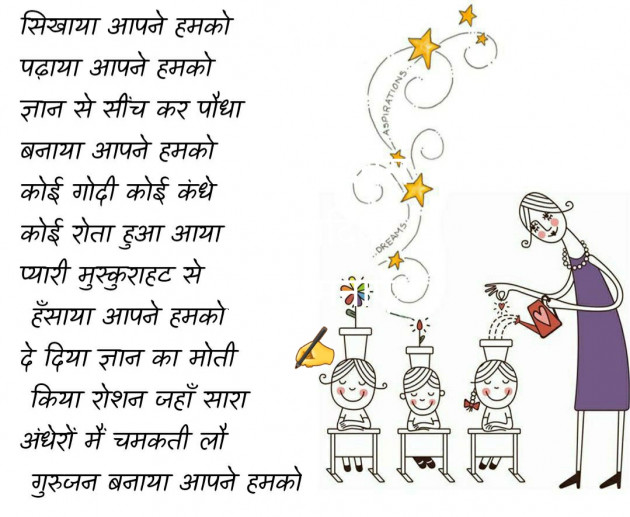 सिखाया आपने हमको
पढ़ाया आपने हमको
ज्ञान से सींच कर पौधा
बनाया आपने हमको
कोई गोदी कोई कंधे
कोई रोता हुआ आया
प्यारी मुस्कुराहट से
हँसाया आपने हमको
दे दिया ज्ञान का मोती
किया रोशन जहाँ सारा
अंधेरों में चमकती लौ
गुरुजन बनाया आपने हमको
ASPIRATIONS
DREAMS